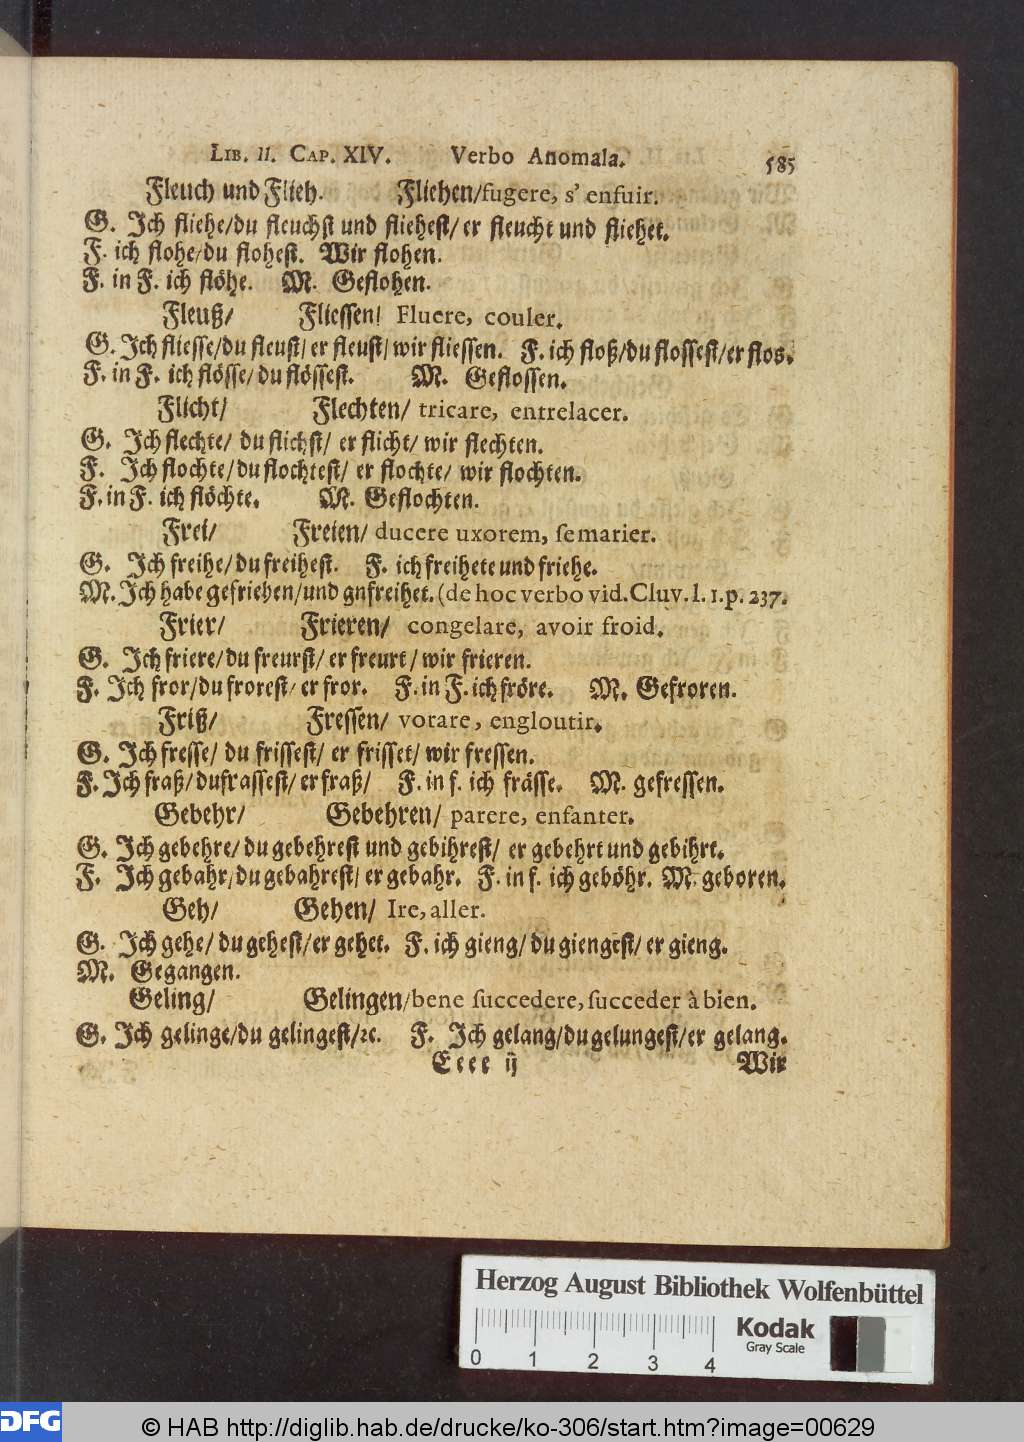 LIB. II. CAP. XIV. Verbo Anomala. 585
Fleuch und Flieh. Fliehen/fugere, s' enfuir.
G. Ich fliehe/du fleuchst und fliehest/er fleucht und fliehet.
F. ich flohe/du flohest. Wir flohen.
F. in F. ich flöhe. M. Geflohen.
Fleuß/ Fliessen/ Fluere, couler.
G. Ich fliesse/du fleust/er fleust/wir fliessen. F. ich floß/du flossest/er flos.
F. in F. ich flösse/du flössest. M. Geflossen.
Flicht/ Flechten/ tricare, entrelacer.
G. Ich flechte/ du flichst/ er flicht/ wir flechten.
F. Ich flochte/du flochtest/ er flochte/ wir flochten.
F. in F. ich flöchte. M. Geflochten.
Frei/ Freien/ ducere uxorem, ſe marier.
G. Ich freihe/du freihest. F. ich freihete und friehe.
M. Ich habe gefriehen/und gnfreihet. (de hoc verbo vid. Cluv. l. 1. p. 237.
Frier/ Frieren/ congelare, avoir froid.
G. Ich friere/du freurst/er freurt/wir frieren.
F. Ich fror/du frorest/er fror. F. in F. ich fröre. M. Gefroren.
Friß/ Fressen/ vorare, engloutir.
G. Ich fresse/ du frissest/ er frisset/ wir fressen.
F. Ich fraß/du frassest/er fraß/ F. in f. ich frässe. M. gefressen.
Gebehr/ Gebehren/ parere, enfanter.
G. Ich gebehre/du gebehrest und gebihrest/ er gebehrt und gebihrt.
F. Ich gebahr/du gebahrest/er gebahr. F. in f. ich geböhr. M. geboren.
Geh/ Gehen/ Ire, aller.
G. Ich gehe/du gehest/er gehet. F. ich gieng/du giengest/er gieng.
M. Gegangen.
Geling/ Gelingen/bene ſuccedere, ſucceder à bien.
G. Ich gelinge/du gelingest/ꝛc. F. Ich gelang/du gelungest/er gelang.
Eeee ij Wir
Herzog August Bibliothek Wolfenbüttel
Kodak
Gray Scale
0 1 2 3 4
DFG
© HAB http://diglib.hab.de/drucke/ko-306/start.htm?image=00629